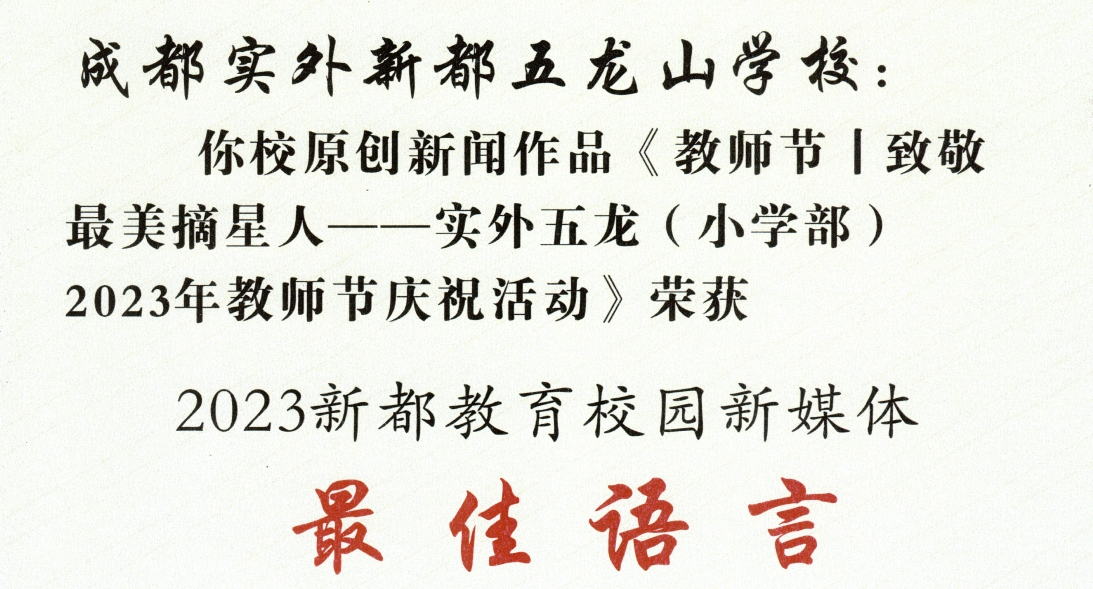 成都实外新都五龙山学校：
你校原创新闻作品《教师节丨致敬
最美摘星人——实外五龙（小学部）
2023年教师节庆祝活动》荣获
2023新都教育校园新媒体
最佳语言